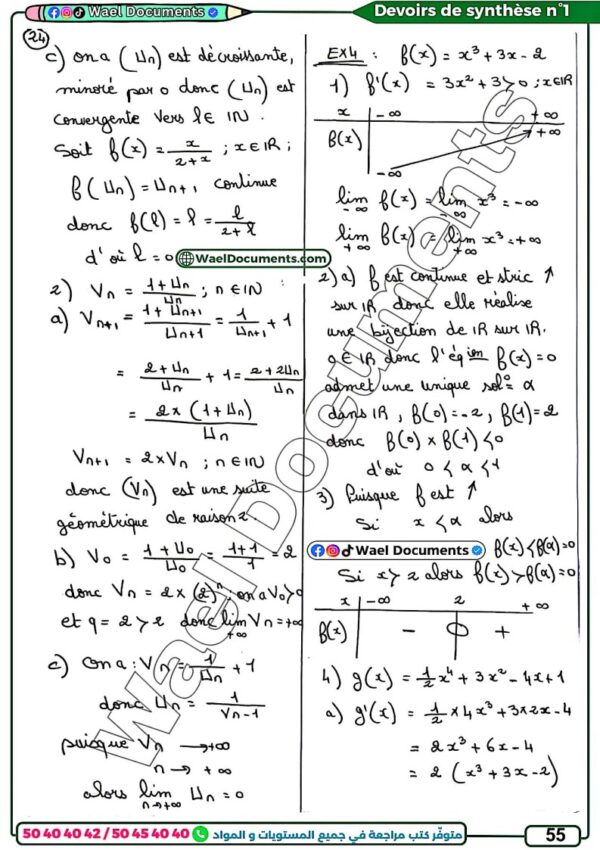 Wael Documents
Devoirs de synthèse n°1
24
c) on a (Un) est décroissante,
minoré par 0 donc (Un) est
convergente vers l ∈ IN.
Soit f(x) = x/(2+x) ; x ∈ IR ;
f(Un) = Un+1 continue
donc f(l) = l = l/(2+l)
d'où l = 0
WaelDocuments.com
2) Vn = (1+Un)/Un ; n ∈ IN
a) Vn+1 = (1+Un+1)/Un+1 = 1/Un+1 + 1
= (2+Un)/Un + 1 = (2+2Un)/Un
= 2×(1+Un)/Un
Vn+1 = 2×Vn ; n ∈ IN
donc (Vn) est une suite
géométrique de raison 2.
b) V0 = (1+U0)/U0 = (1+1)/1 = 2
donc Vn = 2×(2)^n ; on a V0 > 0
et q = 2 > 2 donc lim Vn = +∞
+∞
c) on a : Vn = 1/Un + 1
donc Un = 1/(Vn-1)
puisque Vn → +∞
n → +∞
alors lim Un = 0
n→+∞
EX4 : f(x) = x³ + 3x - 2
1) f'(x) = 3x² + 3 > 0 ; x ∈ IR
x -∞ +∞
f(x) -∞ +∞
lim f(x) = lim x³ = -∞
-∞ -∞
lim f(x) = lim x³ = +∞
+∞ +∞
2) a) f est continue et stric ↑
sur IR donc elle réalise
une bijection de IR sur IR.
0 ∈ IR donc l'éq ion f(x) = 0
admet une unique sol° α
dans IR, f(0) = -2, f(1) = 2
donc f(0) × f(1) < 0
d'où 0 < α < 1
3) Puisque f est ↑
Si x < α alors
Wael Documents
f(x) < f(α) = 0
Si x > 2 alors f(x) > f(α) = 0
x -∞ 2 +∞
f(x) - 0 +
4) g(x) = 1/2 x⁴ + 3x² - 4x + 1
a) g'(x) = 1/2 × 4x³ + 3×2x - 4
= 2x³ + 6x - 4
= 2 (x³ + 3x - 2)
Wael Documents
50 40 40 42 / 50 45 40 40
متوفّر كتب مراجعة في جميع المستويات و المواد
55